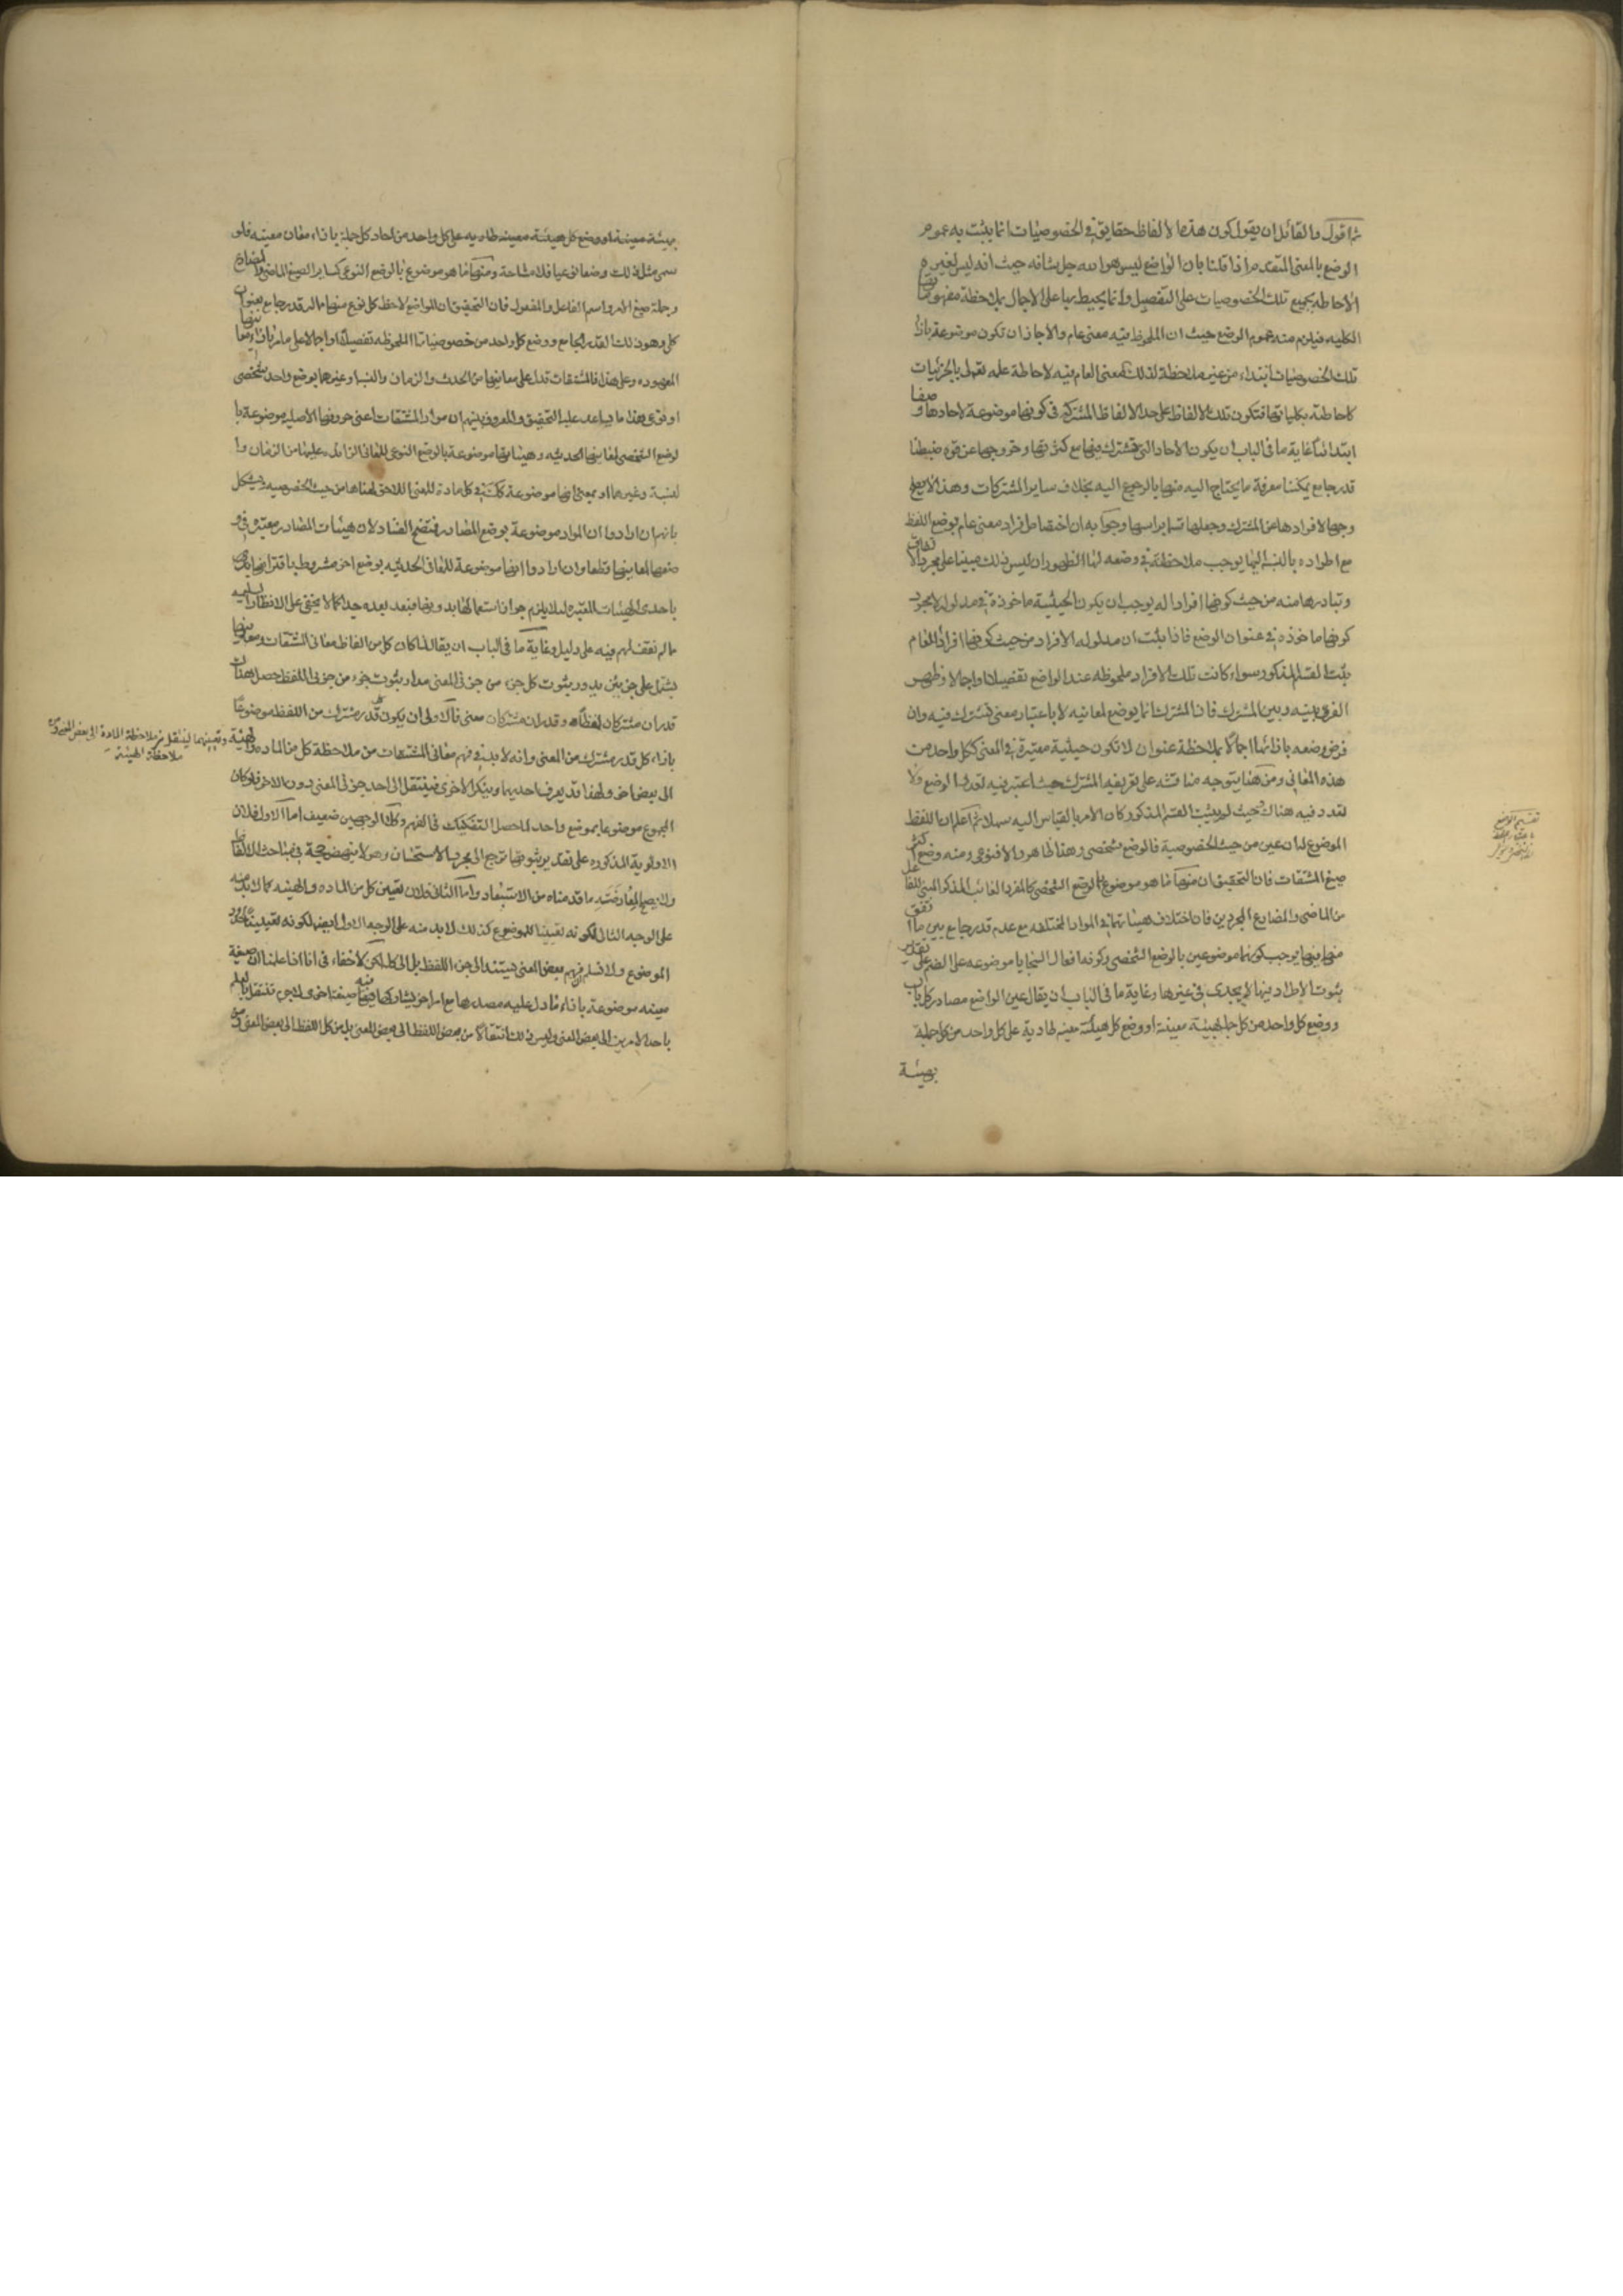 ثم اقول والقائل ان يقول كون هذه الالفاظ حقايق في الخصوصيات انما يثبت به عموم
الوضع بالمعنى المتقدم اذا قلنا بان الواضع ليس هو الله جل شانه حيث انه ليس لغيره
الاحاطة بجميع تلك الخصوصيات على التفصيل وانما يحيط بها على الاجمال بملاحظة مفهوماتها
الكليه فيلزم منه عموم الوضع حيث ان الملحوظ فيه معنى عام والا جاز ان تكون موضوعة بازاء
تلك الخصوصيات ابتداء من غير ملاحظة لذلك المعنى العام فيه لاحاطة علمه تعالى بالجزئيات
كاحاطته بكلياتها فتكون تلك الالفاظ على حد الالفاظ المشتركة في كونها موضوعة لاحادها وضعا
ابتدائيا غاية ما في الباب ان يكون الاحاد التي تشترك فيها مع كثرتها وخروجها عن قوة ضبطنا
قدر جامع يمكننا معرفة ما يحتاج اليه منها بالرجوع اليه بخلاف ساير المشتركات وهذا لا يصلح
وجها لافرادها عن المشترك وجعلها قسما براسها وجوابه ان اختصاص افراد معنى عام بوضع اللفظ
مع اطراده بالنسبة اليها يوجب ملاحظته في وضعه لها الظهور ان ليس ذلك مبينا على مجرد الاتفاق
وتبادرها منه من حيث كونها افرادا له يوجب ان يكون الحيثية ماخوذة في مدلوله لا مجرد
كونها ماخوذه في عنوان الوضع فاذا ثبت ان مدلوله الافراد من حيث كونها افرادا للعام
ثبت القسم المذكور سواء كانت تلك الافراد ملحوظه عند الواضع تفصيلا او اجمالا وظهر
الفرق بينه وبين المشترك فان المشترك انما يوضع لمعانيه لا باعتبار معنى تشترك فيه وان
فرض وضعه بازائها اجمالا بملاحظة عنوان لا تكون حيثية معتبرة في المعنى ككل واحد من
هذه المعاني ومن هنا يتوجه مناقشة على تعريفهم المشترك حيث اعتبر فيه تعدد الوضع ولا
تعدد فيه هناك بحيث لو يثبت القسم المذكور كان الامر بالقياس اليه سهلا ثم اعلم ان اللفظ
الموضوع لمان عين من حيث الخصوصية فالوضع شخصي وهذا ظاهر والا فنوعي ومنه وضع اكثر
صيغ المشتقات فان التحقيق ان منها ما هو موضوع بالوضع الشخصي كالمفرد الغائب المذكر المبني للفاعل
من الماضي والمضارع المجردين فان اختلاف هيئاتهما في المواد المختلفه مع عدم قدر جامع بين ما اتفق
منها فيها يوجب كونهما موضوعين بالوضع الشخصي وكون افعال السجايا موضوعه على الضم على تقدير
ثبوت الاطراد فيها لا يجدي في غيرها وغاية ما في الباب ان يقال عين الواضع مصادر كل باب
ووضع كل واحد من كل جملة بهيئة معينة او وضع كل هيئة معينه طارية على كل واحد من كل جملة
بهيئة
تقسيم الوضع
باعتبار اللفظ
الى شخصي ونوعي
بهيئة معينة او وضع كل هيئة معينه طاريه على كل واحد من احاد كل جملة بازاء معان معينه فلو
سمى مثل ذلك وضعا نوعيا فلا مشاحة ومنها ما هو موضوع بالوضع النوعي كساير الصيغ الماضي والمضارع
وجملة صيغ الامر واسم الفاعل والمفعول فان التحقيق ان الواضع لاحظ كل نوع منها مما له قدر جامع بعنوان
كلي وهو ذلك القدر الجامع ووضع كل واحد من خصوصياتها الملحوظه تفصيلا او اجمالا على ما مر بازاء معانيها
المعهوده وعلى هذا فالمشتقات تدل على معانيها من الحدث والزمان والنسبة وغيرهما بوضع واحد شخصي
او نوعي هذا ما يساعد عليه التحقيق والمعروف بينهم ان مواد المشتقات اعني حروفها الاصليه موضوعة با
لوضع الشخصي لمعانيها الحدثيه وهيئاتها موضوعة بالوضع النوعي للمعاني الزائدة عليها من الزمان وا
لنسبة وغيرهما او بمعنى انها موضوعة كلية في كل مادة للمعنى اللاحق لمعناها من حيث الخصوصيه ويشكل
بانهم ان ارادوا ان المواد موضوعة بوضع المصادر فمتضح الفساد لان هيئات المصادر معتبرة في و
ضعها لمعانيها قطعا وان ارادوا انها موضوعة للمعاني الحدثيه بوضع اخر مشروط باقترانها
باحدى الهيئات المعتبره لئلا يلزم جواز استعمالها بدونها فبعد بعده جدا كما لا يخفى على الانظار السليمه
مما لم نقف لهم فيه على دليل وغاية ما في الباب ان يقال لما كان كل من الفاظ معاني المشتقات ومعانيها
يشتمل على جزئين يدور ثبوت كل جزء من جزئي المعنى مدار ثبوت جزء من جزئي اللفظ حصل هناك
قدران مشتركان لفظا وقدران مشتركان معنى فالاولى ان يكون كل قدر مشترك من اللفظ موضوعا
بازاء كل قدر مشترك من المعنى وانه لا بد في فهم معاني المشتقات من ملاحظة كل من الماده والهيئة
وتعيينهما لينتقل من ملاحظة المادة الى بعض المعنى ومن
ملاحظة الهيئة
الى بعض اخر ولهذا قد يعرف احديهما وينكر الاخرى فينتقل الى احد جزئي المعنى دون الاخر فلو كان
المجموع موضوعا بوضع واحد لما حصل التفكيك في الفهم وكلا الوجهين ضعيف اما الاول فلان
الاولوية المذكوره على تقدير ثبوتها ترجع الى مجرد الاستحسان وهو لا ينهض حجة في مباحث الالفاظ
ولا يصلح لمعارضة ما قدمناه من الاستبعاد واما الثاني فلان تعيين كل من الماده والهيئه كما لا بد منه
على الوجه الثاني لكونه تعيينا للموضوع كذلك لا بد منه على الوجه الاول ايضا لكونه تعيينا لجزء
الموضوع ولا نسلم ان فهم بعض المعنى يستند الى جزء اللفظ بل الى كله لكن لا خفاء في انا اذا علمنا ان صيغة
معينه موضوعة بازاء ما دل عليه مصدرها مع امر اخر يشاركها فيه صيغة اخرى فلا جرم ننتقل بالعلم
باحد الامرين الى بعض المعنى وليس ذلك انتقالا من بعض اللفظ الى بعض المعنى بل من كل اللفظ الى بعض المعنى